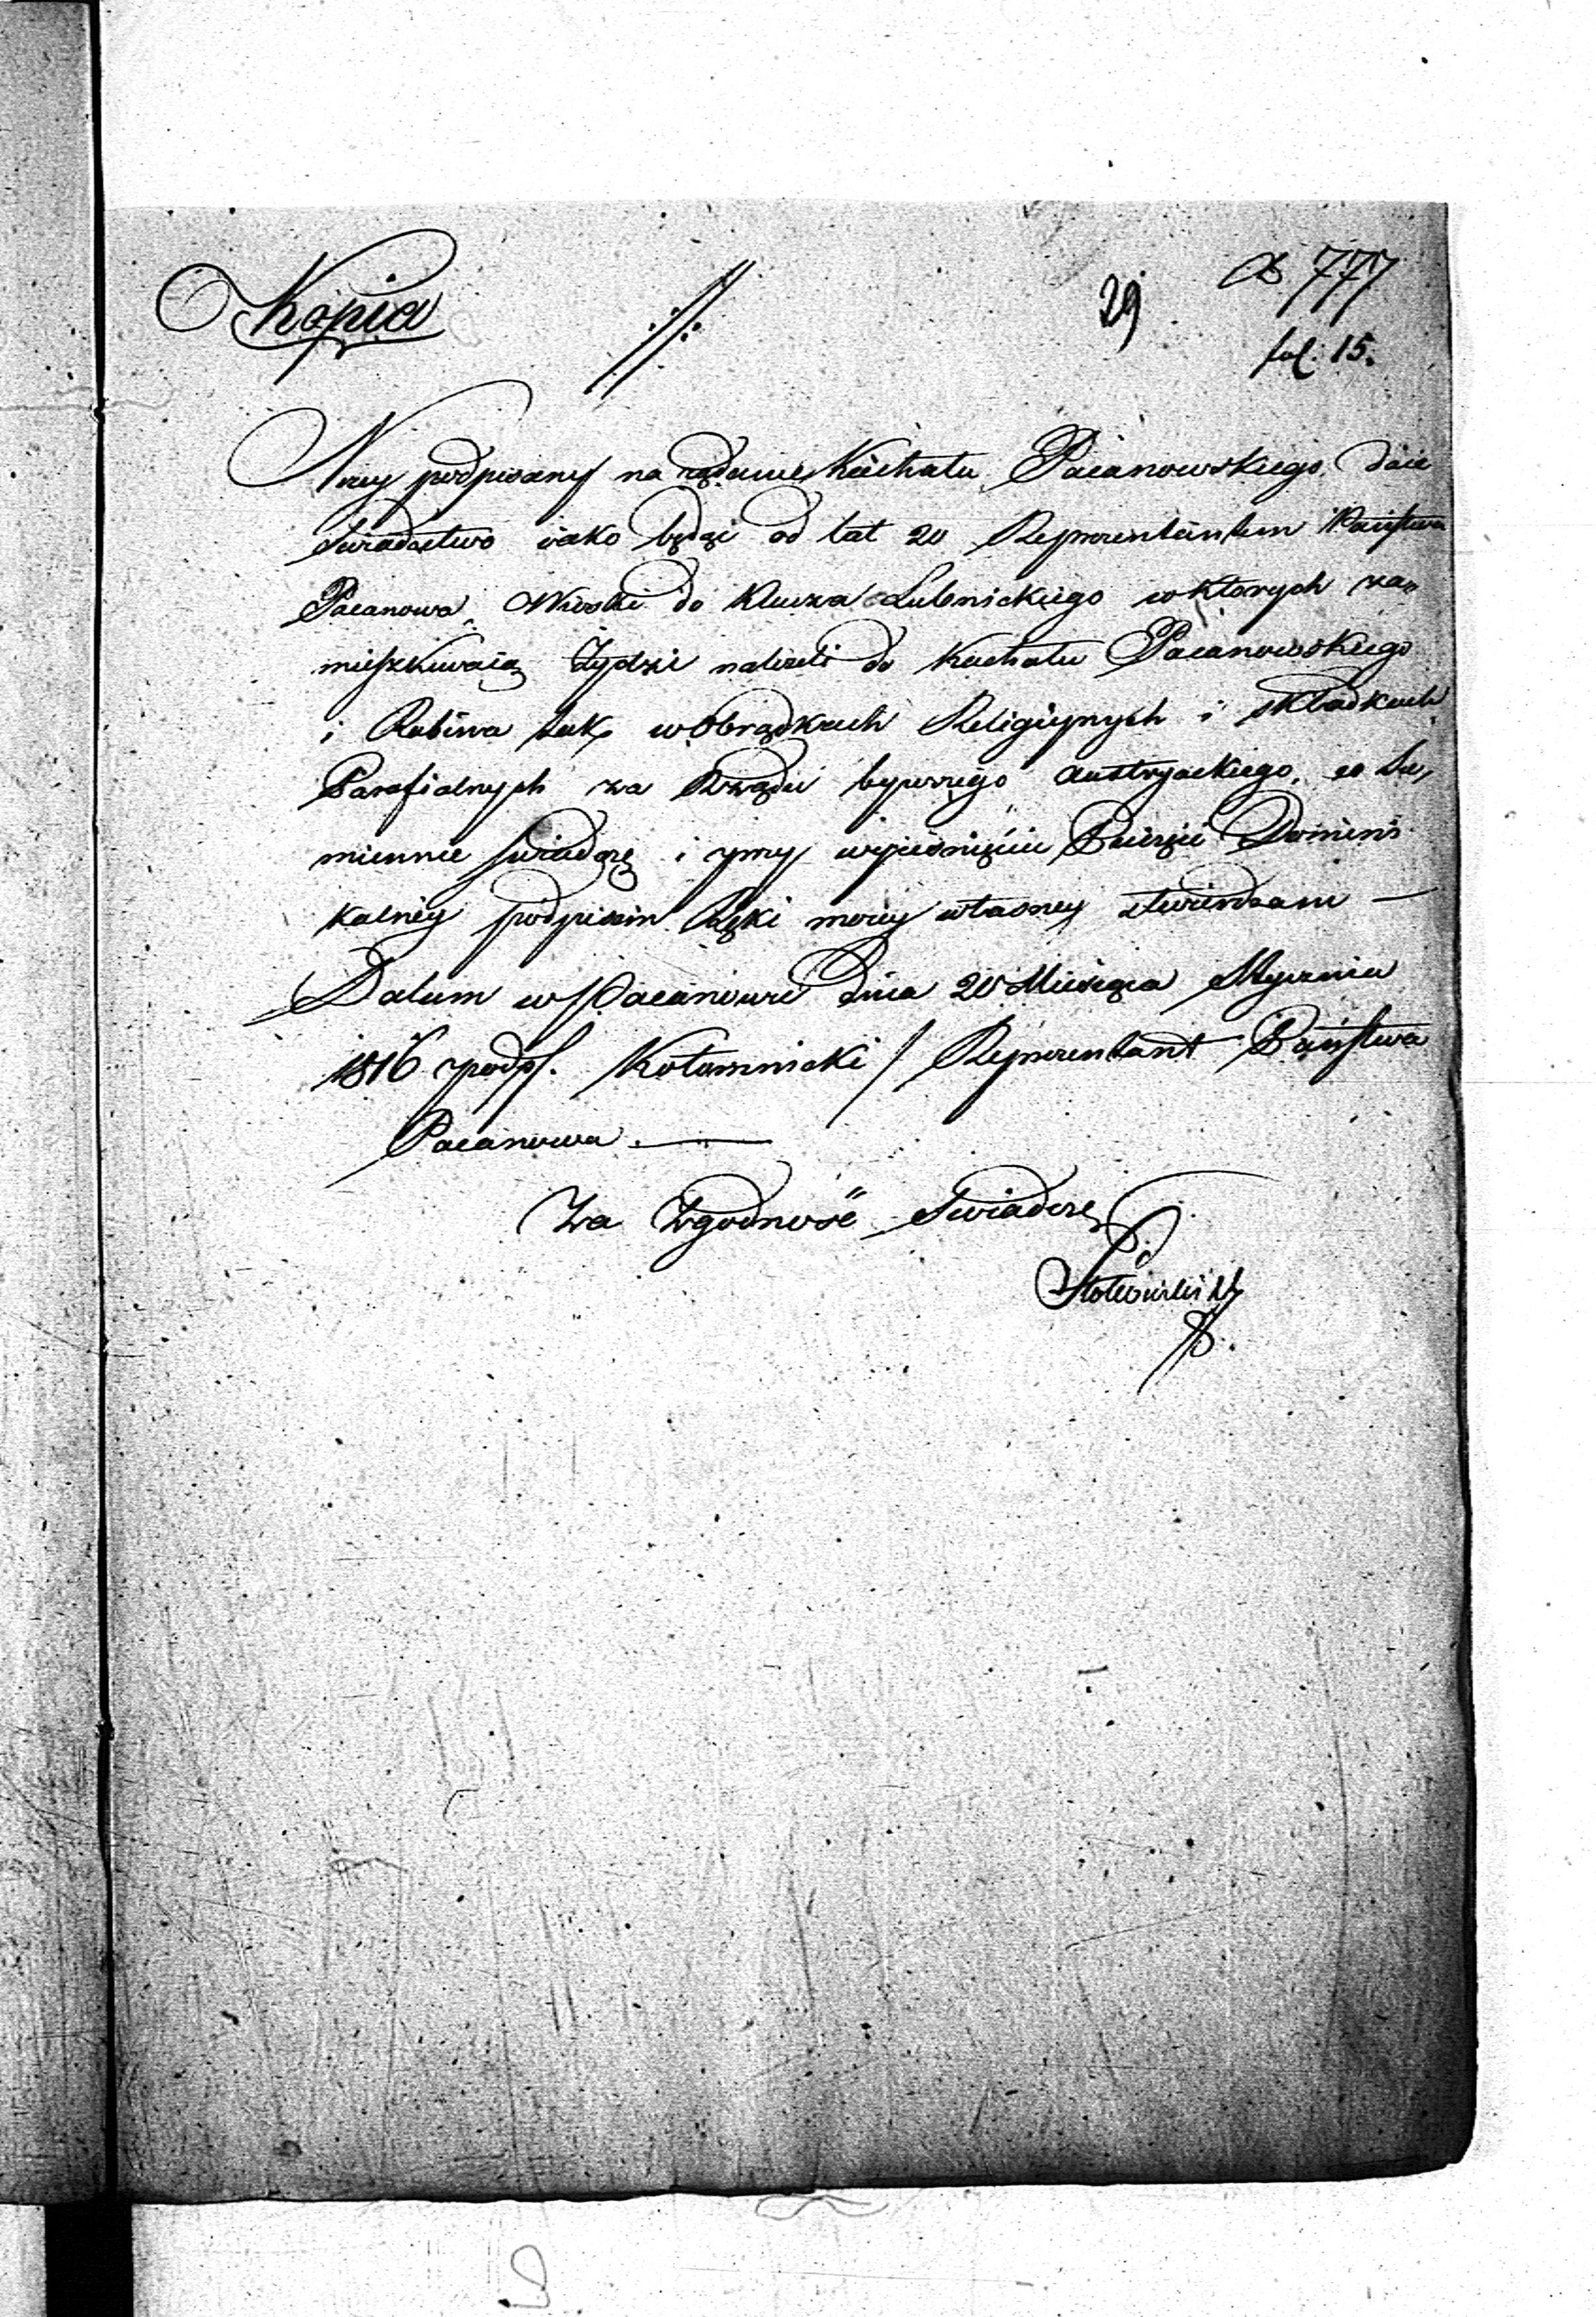 Kopia
29
777
fol: 15.
Niżey podpisany na rządanie Kachału Pacanowskiego, daie
Swiadectwo iako będąc od lat 20 Reprezentantem Państwa
Pacanowa, Wioski do Klucza Lubnickiego wktorych za„
mieszkiwaią Żydzi należeli do Kachału Pacanowskiego
i Rabina tak wobrządkach Religiynych i składkach
Parafialnych za Rządu bywszego Austryackiego, co Su„
miennie swiadczę i przy wyciśnięciu Pieczęci Domini„
kalnéy podpisem Ręki moiey własney stwierdzam —
Datum w Pacanowie Dnia 20 Miesiąca Stycznia
1816 podp. Kotomnicki / Reprezentant Państwa
Pacanowa. —
Za Zgodność Swiadczę